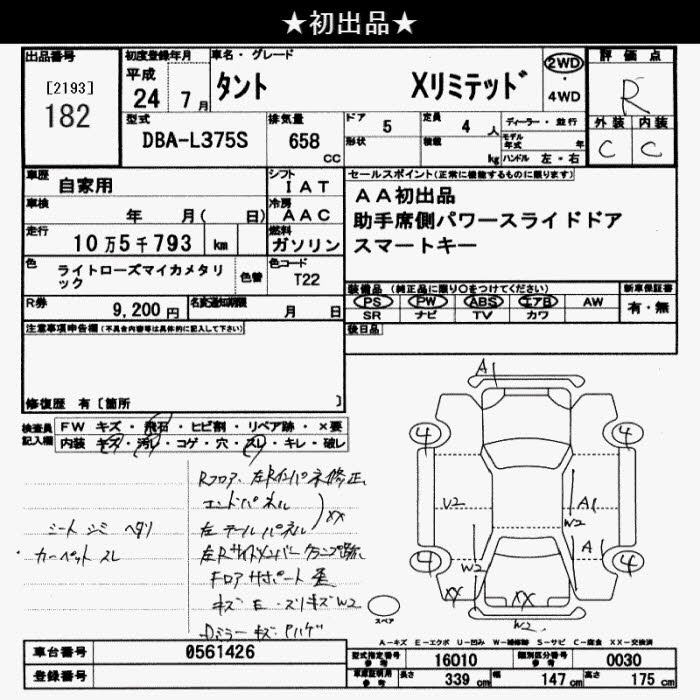 ★初出品★
出品番号
[2193]
182
初度登録年月
平成
24 7月
車名・グレード
タント Xリミテッド
2WD
・
4WD
評価点
R
外装 内装
C C
型式
DBA-L375S
排気量
658
cc
ドア
5
定員
4 人
ディーラー・並行
形状
積載
kg
モデル年式 年
ハンドル 左・右
車歴
自家用
シフト
IAT
車検
年 月( 日)
冷房
AAC
走行
10万5千793 km
燃料
ガソリン
色
ライトローズマイカメタリック
色替
色コード
T22
R券
9,200円
名変通知期限
月 日
セールスポイント(正常に機能するものに限ります)
AA初出品
助手席側パワースライドドア
スマートキー
装備品 (純正品に限り○をつけてください)
新車保証書
PS PW ABS エアB AW
SR ナビ TV カワ
有・無
後日品
注意事項申告欄(不具合内容等は具体的に記入して下さい)
修復歴 有〔箇所 〕
検査員記入欄
FW キズ・飛石・ヒビ割・リペア跡・×要
内装 キズ・汚レ・コゲ・穴・スレ・キレ・破レ
Rフロア、左Rインパネ修正、
エンドパネル
左テールパネル
XX
シートシミ ヘタリ
カーペットスレ
左Rサイドメンバークランプ跡、
Fロアサポート歪
キズ E・スリキズW2
Dミラーキズ・ハゲ
A1
4
4
U2
A1
W2
A1
4
4
W2
XX
XX
W2
スペア
A-キズ E-エクボ U-凹み W-補修跡 S-サビ C-腐食 XX-交換済
車台番号
0561426
登録番号
型式指定番号
参考
16010
類別区分番号
参考
0030
車庫証明用
参考
長さ 339 cm
幅 147 cm
高さ 175 cm